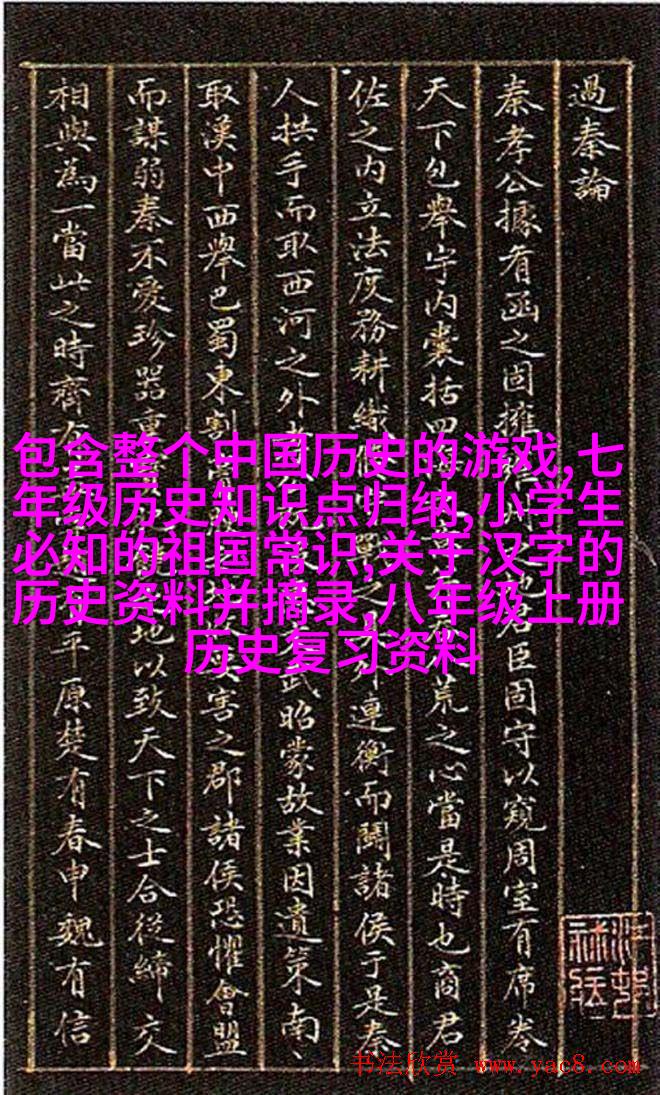 過秦論
秦孝公據有函之固擁 之地君臣固守以窺周室有席卷
天下包舉宇內囊括四 荒之心當是時也商君
佐之內立法度務耕織 連衡而鬪諸侯于是秦
人拱手而取西河之外 武昭蒙故業因遺策南、
取漢中西舉巴蜀東割 害之郡諸侯恐懼會盟
而謀弱秦不愛珍器重 地以致天下之士合從締交
相與為一當此之時齊 平原楚有春申魏有信
包含整个中国历史的游戏,七
年级历史知识点归纳,小学生
必知的祖国常识,关于汉字的
历史资料并摘录,八年级上册
历史复习资料
书法欣赏 www.yac8.com